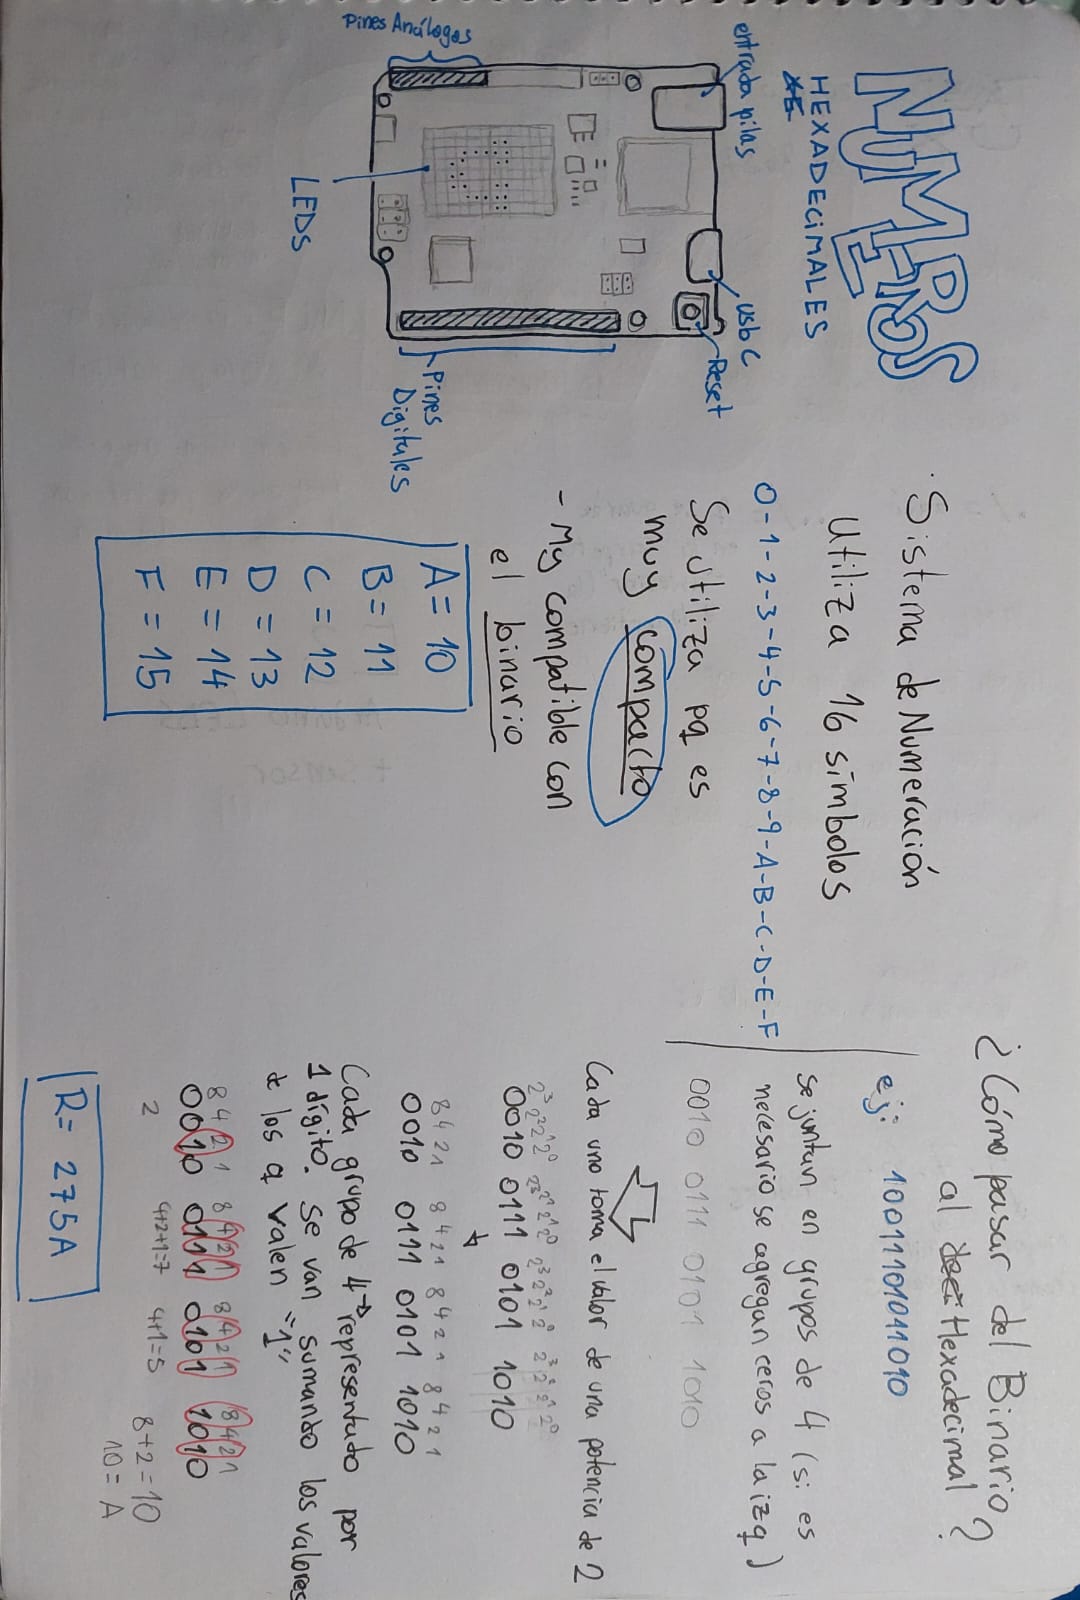 NUMEROS
HEXADECIMALES
entrada pilas
usb C
Reset
Pines Análogos
Pines
Digitales
LEDS
Sistema de Numeración
Utiliza 16 símbolos
0-1-2-3-4-5-6-7-8-9-A-B-C-D-E-F
Se utiliza pq es
muy compacto
- My compatible con
el binario
A = 10
B = 11
C = 12
D = 13
E = 14
F = 15
¿Cómo pasar del Binario
al Hexadecimal?
ej: 10011101011010
se juntan en grupos de 4 (si es
necesario se agregan ceros a la izq)
0010 0111 0101 1010
Cada uno toma el valor de una potencia de 2
2³ 2² 2¹ 2⁰ 2³ 2² 2¹ 2⁰ 2³ 2² 2¹ 2⁰ 2³ 2² 2¹ 2⁰
0010 0111 0101 1010
8 4 2 1 8 4 2 1 8 4 2 1 8 4 2 1
0010 0111 0101 1010
Cada grupo de 4 → representado por
1 dígito. Se van sumando los valores
de los q valen "1"
8 4 2 1 8 4 2 1 8 4 2 1 8 4 2 1
0010 0111 0101 1010
2 4+2+1=7 4+1=5 8+2=10
10 = A
R= 275A